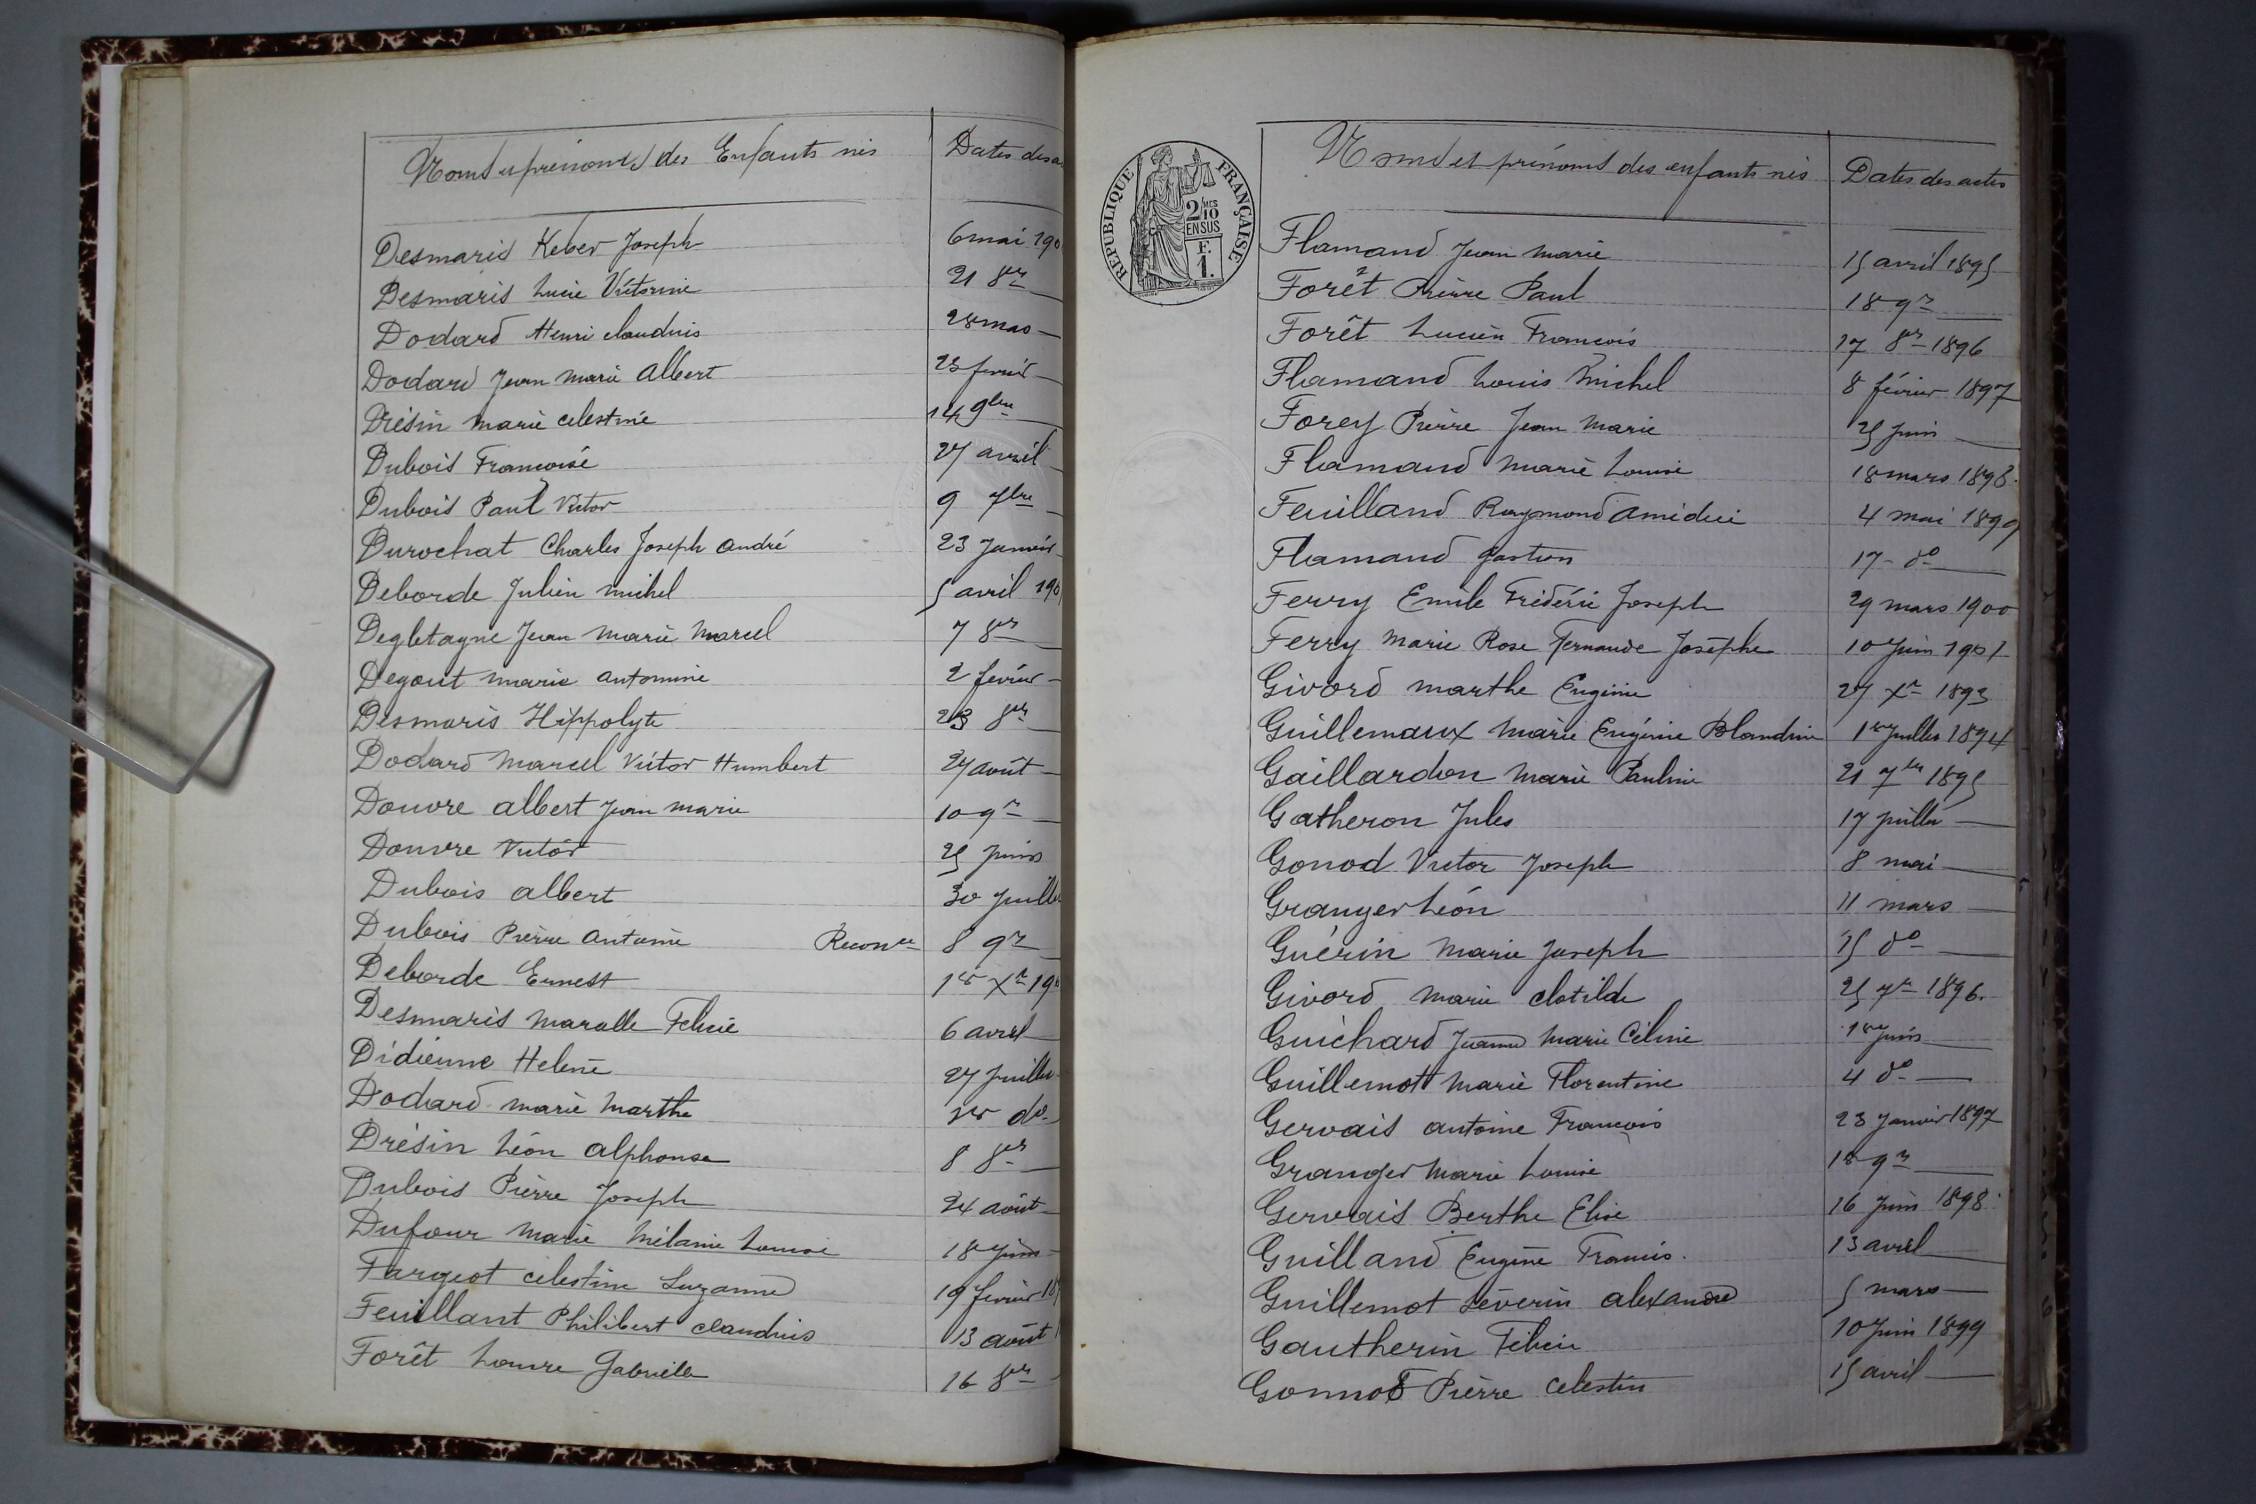 Noms et prénoms des Enfants nés Dates des a
Desmaris Keber Joseph 6 mai 190
Desmaris Lucie Victorine 21 8br —
Dodard Henri Claudius 28 mas —
Dodard Jean Marie Albert 23 février —
Drésin Marie Célestine 14 9bre —
Dubois Françoise 27 avril —
Dubois Paul Victor 9 7bre —
Durochat Charles Joseph André 23 Janvier
Deborde Julien Michel 5 avril 190
Degletagne Jean Marie Marcel 7 8br —
Degout Marie Antonine 2 février —
Desmaris Hippolyte 23 8br —
Dodard Marcel Victor Humbert 27 août —
Douvre Albert Jean Marie 10 9r —
Douvre Victor 25 Juin
Dubois Albert 30 Juillet
Dubois Pierre Antoine Reconce 8 9r —
Deborde Ernest 1er Xr 190
Desmaris Félicie 6 avril
Didienne Helène 27 Juillet
Dodard Marie Marthe 1er do
Drésin Léon Alphonse 8 8br —
Dubois Pierre Joseph 24 août —
Dufour Marie Mélanie Louise 18 Juin —
Fargeot Celestine Suzanne 19 février 18
Feuillant Philibert Claudius 13 août 1
Forêt Gabrielle 16 8br —
REPUBLIQUE FRANÇAISE
2/10 MES
EN SUS
F.
1.
Noms et prénoms des enfants nés Dates des actes
Flamand Jean Marie 15 avril 1895
Forêt Pierre Paul 18 9r —
Forêt Lucien François 17 8br 1896
Flamand Louis Michel 8 février 1897
Forey Pierre Jean Marie 25 Juin —
Flamand Marie Louise 18 mars 1898.
Feuilland Raymond Amédée 4 mai 1899
Flamand Gaston 17 - do —
Ferry Emile Frédéric Joseph 29 mars 1900
Ferry Marie Rose Fernande Josèphe 10 Juin 1901
Givord Marthe Eugénie 27 Xr 1893
Guillemaux Marie Eugénie Blandine 1er Juillet 1894
Gaillardon Marie Pauline 21 7br 1895
Gatheron Jules 17 Juillet —
Gonod Victor Joseph 8 mai —
Granger Léon 11 mars —
Guérin Marie Joseph 15 do —
Givord Marie Clotilde 25 7r 1896.
Guichard Jeanne Marie Céline 1er Juin —
Guillemot Marie Florentine 4 do —
Gervais Antoine François 23 Janvier 1897
Granger Marie Louise 18 9r —
Gervais Berthe Elise 16 Juin 1898
Guilland Eugène Francis. 13 avril —
Guillemot Séverin Alexandre 5 mars —
Gautherin Félicie 10 Juin 1899
Gonnot Pierre Célestin 15 avril —